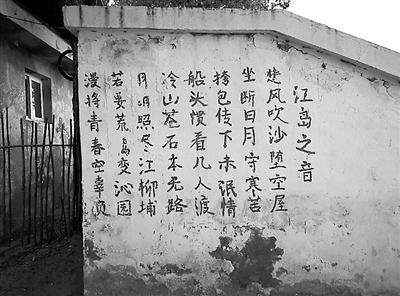 江岛之音
楚风吹沙堕空屋
坐断日月守寒苦
挎包传下未泯情
船头惯看几人渡
冷山苍石本无路
月明照尽江柳埔
若要荒岛变沁园
漫将青春空辜负